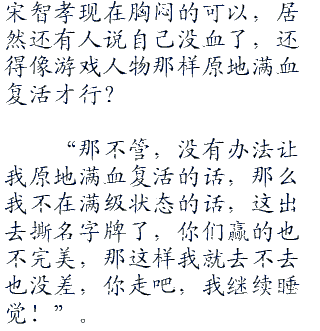 宋智孝现在胸闷的可以，居
然还有人说自己没血了，还
得像游戏人物那样原地满血
复活才行？
“那不管，没有办法让
我原地满血复活的话，那么
我不在满级状态的话，这出
去撕名字牌了，你们赢的也
不完美，那这样我就去不去
也没差，你走吧，我继续睡
觉！”。